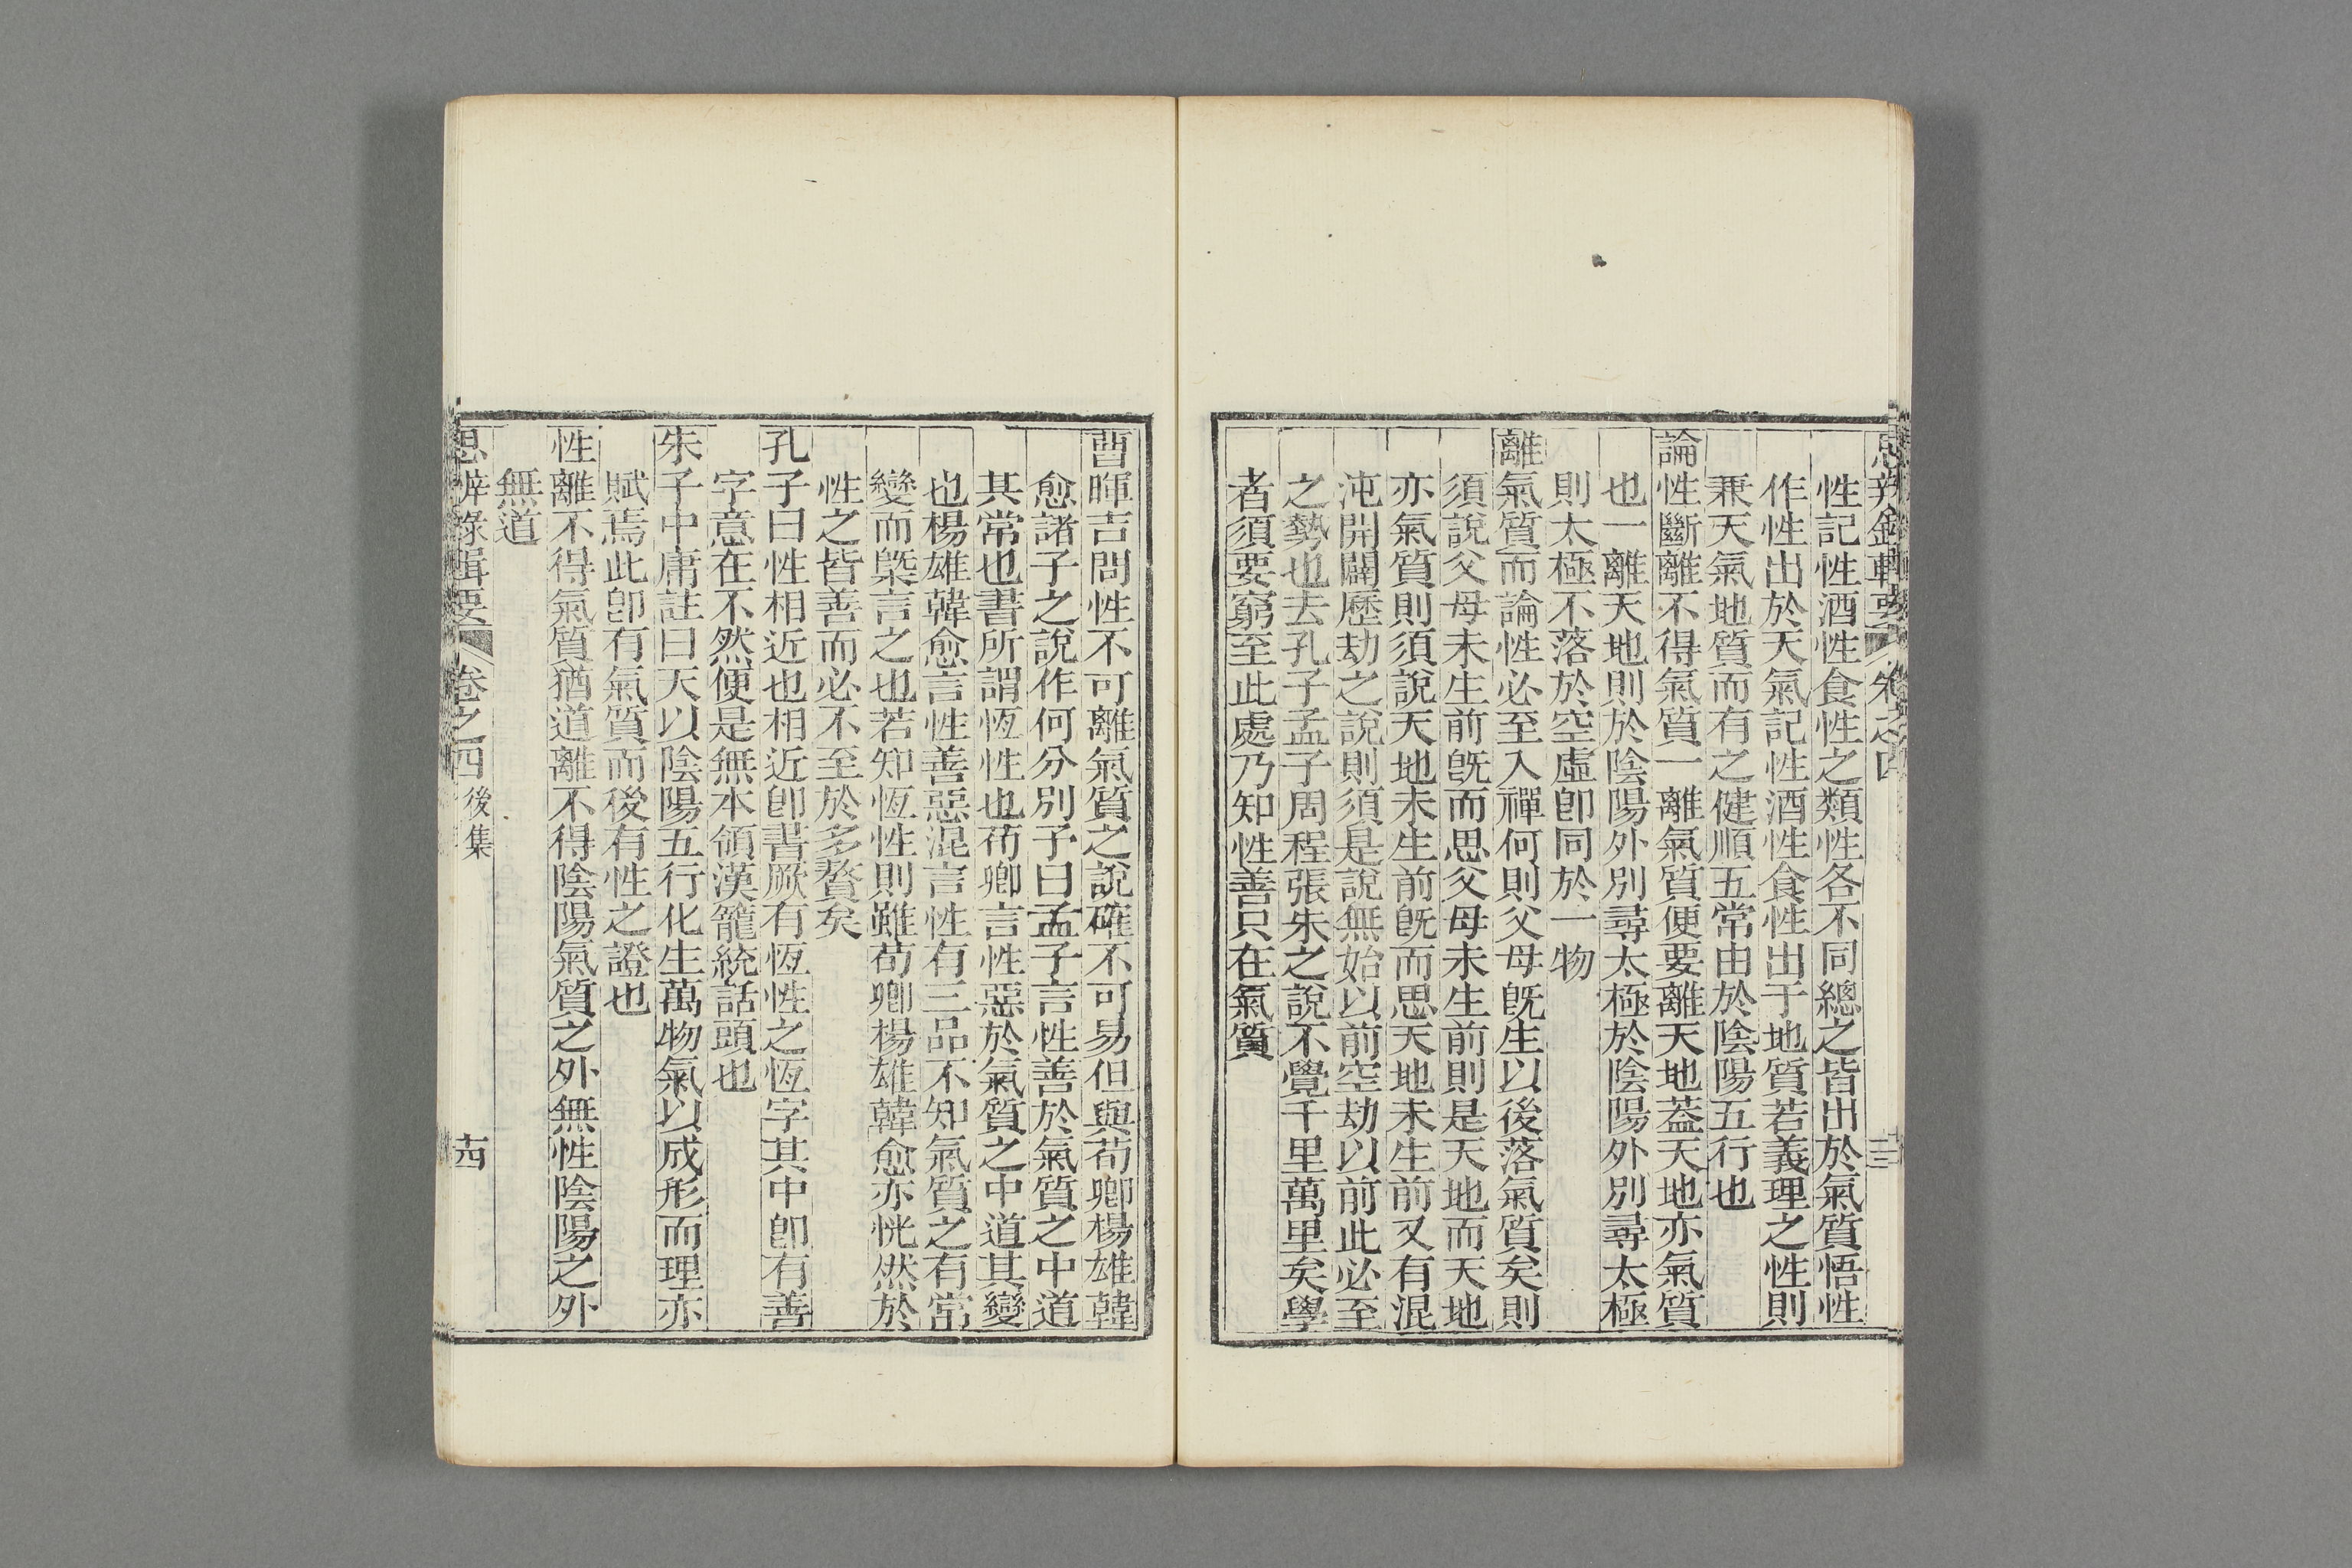 思辨錄輯要 卷之四
性記性酒性食性之類性各不同總之皆出於氣質悟性
作性出於天氣記性酒性食性出于地質若義理之性則
兼天氣地質而有之健順五常由於陰陽五行也
論性斷離不得氣質一離氣質便要離天地葢天地亦氣質
也一離天地則於陰陽外別尋太極於陰陽外別尋太極
則太極不落於空虛卽同於一物
離氣質而論性必至入禪何則父母旣生以後落氣質矣則
須說父母未生前旣而思父母未生前則是天地而天地
亦氣質則須說天地未生前旣而思天地未生前又有混
沌開闢歷劫之說則須是說無始以前空劫以前此必至
之勢也去孔子孟子周程張朱之說不覺千里萬里矣學
者須要窮至此處乃知性善只在氣質
曹暉吉問性不可離氣質之說確不可易但與荀卿楊雄韓
愈諸子之說作何分別予曰孟子言性善於氣質之中道
其常也書所謂恆性也荀卿言性惡於氣質之中道其變
也楊雄韓愈言性善惡混言性有三品不知氣質之有常
變而槩言之也若知恆性則雖荀卿楊雄韓愈亦恍然於
性之皆善而必不至於多贅矣
孔子曰性相近也相近卽書厥有恆性之恆字其中卽有善
字意在不然便是無本領漢籠統話頭也
朱子中庸註曰天以陰陽五行化生萬物氣以成形而理亦
賦焉此卽有氣質而後有性之證也
性離不得氣質猶道離不得陰陽氣質之外無性陰陽之外
無道
思辨錄輯要 卷之四 後集 十四